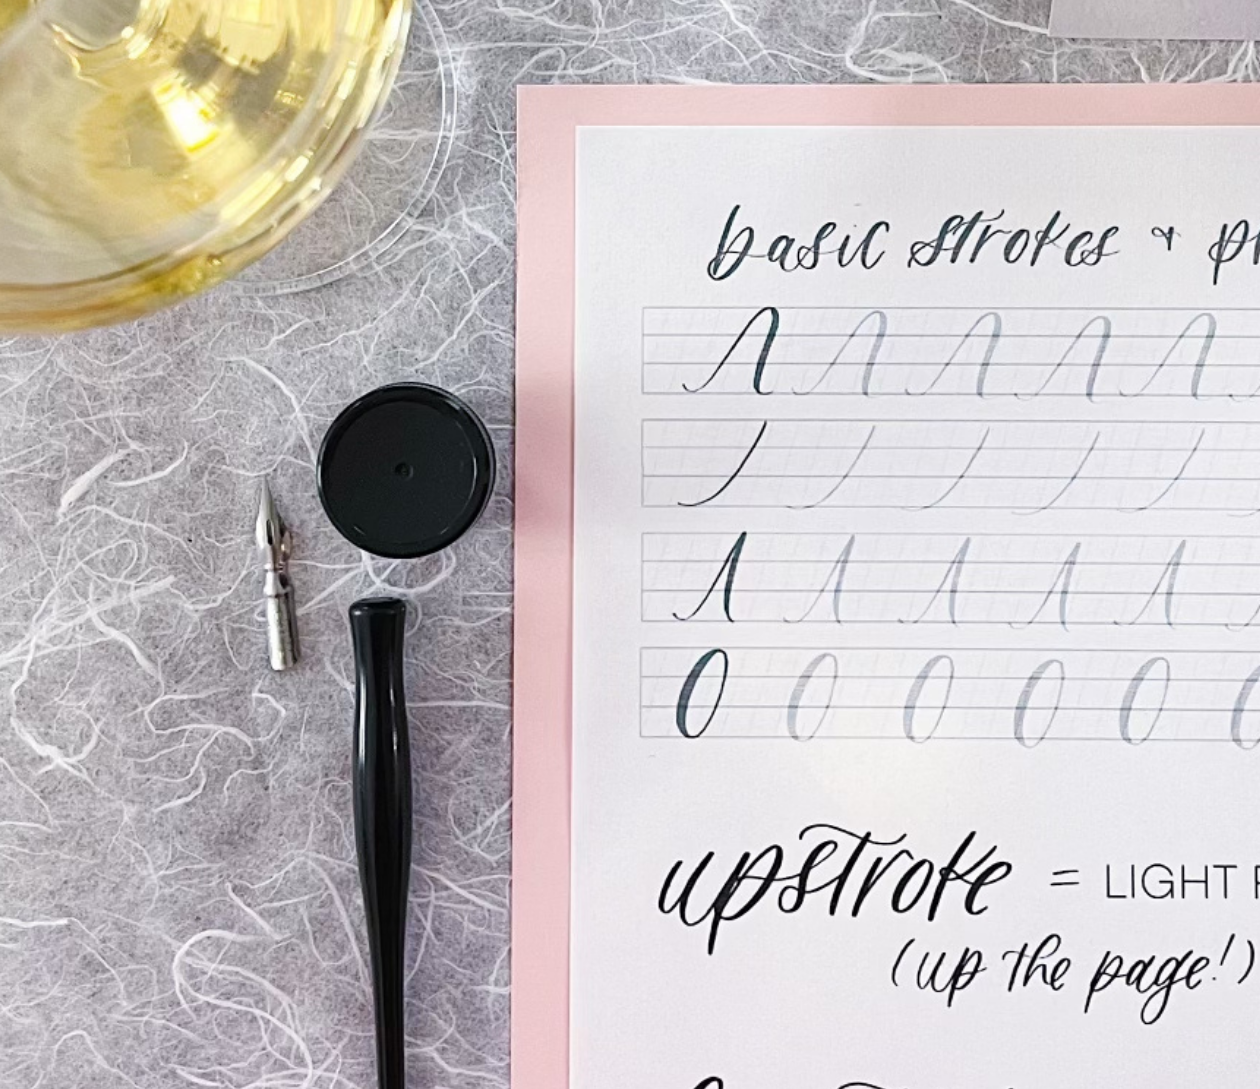 basic strokes + 
upstroke = LIGHT
(up the page!)